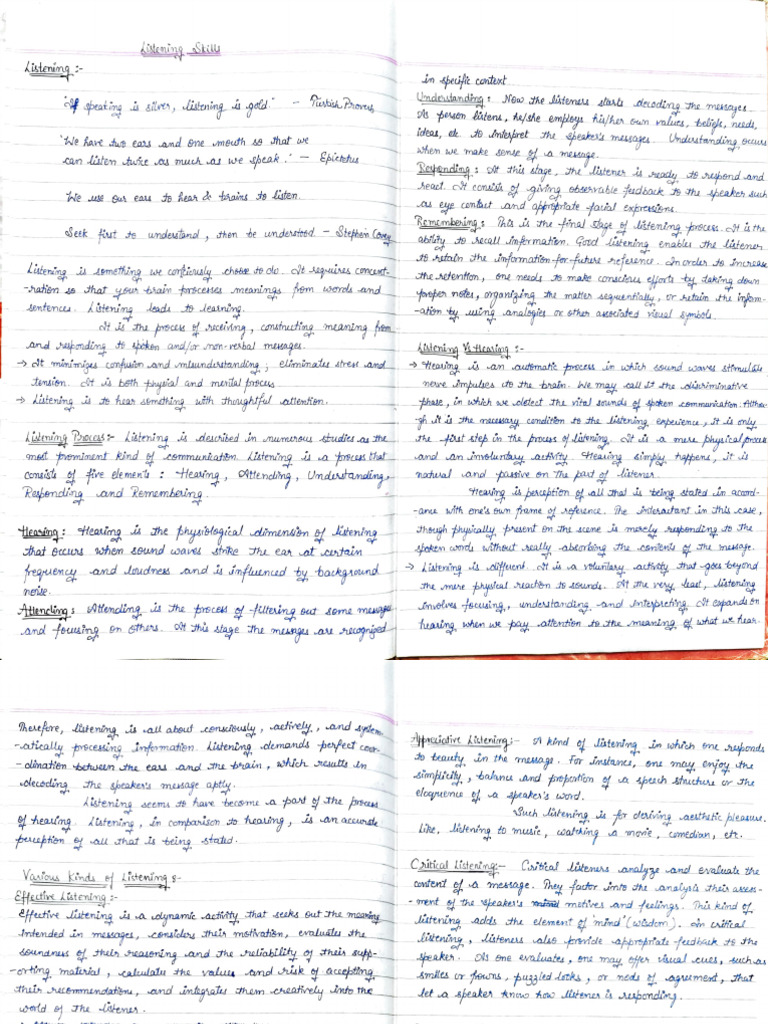 Listening Skills
Listening :-
"If speaking is silver, listening is gold." - Turkish Proverb
"We have two ears and one mouth so that we
can listen twice as much as we speak." - Epictotus
We use our ears to hear & brains to listen.
Seek first to understand, then be understood - Stephein Covey
Listening is something we conficiously choose to do. It requires concent-
-ration so that your brain processes meanings from words and
sentences. Listening leads to learning.
It is the process of receiving, constructing meaning from
and responding to spoken and/or non-verbal messages.
→ It minimizes confusion and misunderstanding; eliminates stress and
tension. It is both physical and mental process
→ Listening is to hear something with thoughtful attention.
Listening Process:- Listening is described in numerous studies as the
most prominent kind of communication. Listening is a process that
consists of five elements : Hearing, Attending, Understanding,
Responding and Remembering.
Hearing : Hearing is the physiological dimension of listening
that occurs when sound waves strike the ear at certain
frequency and loudness and is influenced by background
noise.
Attending : Attending is the process of filtering out some messages
and focusing on others. At this stage the messages are recognized
in specific context
Understanding : Now the listeners starts decoding the messages.
As person listens, he/she employs his/her own values, beliefs, needs,
ideas, etc to interpret the speaker's messages. Understanding occurs
when we make sense of a message.
Responding : At this stage, the listener is ready to respond and
react. It consists of giving observable feedback to the speaker such
as eye contact and appropriate facial expressions.
Remembering : This is the final stage of listening process. It is the
ability to recall information. Good listening enables the listener
to retain the information for future reference. In order to increase
the retention, one needs to make conscious efforts by taking down
proper notes, organizing the matter sequentially, or retain the inform-
-ation by using analogies or other associated visual symbols.
Listening Vs Hearing :-
→ Hearing is an automatic process in which sound waves stimulate
nerve impulses to the brain. We may call it the discriminative
phase, in which we detect the vital sounds of spoken communication. Althou-
gh it is the necessary condition to the listening experience, it is only
the first step in the process of listening. It is a mere physical process
and an involuntary activity. Hearing simply happens, it is
natural and passive on the part of listener.
Hearing is perception of all that is being stated in accord-
-ance with one's own frame of reference. The interactant in this case,
though physically present on the scene is merely responding to the
spoken words without really absorbing the contents of the message.
→ Listening is different. It is a voluntary activity that goes beyond
the mere physical reaction to sounds. At the very least, listening
involves focusing, understanding and interpreting. It expands on
hearing when we pay attention to the meaning of what we hear.
Therefore, listening is all about consciously, actively, and system-
-atically processing information. Listening demands perfect coor-
-dination between the ears and the brain, which results in
decoding the speaker's message aptly.
Listening seems to have become a part of the process
of hearing. Listening, in comparison to hearing, is an accurate
perception of all that is being stated.
Various Kinds of Listening :-
Effective Listening :-
Effective listening is a dynamic activity that seeks out the meaning
intended in messages, considers their motivation, evaluates the
soundness of their reasoning and the reliability of their supp-
-orting material, calculate the values and risk of accepting
their recommendations, and integrates them creatively into the
world of the listener.
Appreciative Listening :- A kind of listening in which one responds
to beauty in the message. For instance, one may enjoy the
simplicity, balance and propotion of a speech structure or the
eloquence of a speaker's word.
Such listening is for deriving aesthetic pleasure.
Like, listening to music, watching a movie, comedian, etc.
Critical Listening:- Critical listeners analyze and evaluate the
content of a message. They factor into the analysis their assess-
-ment of the speaker's motives and feelings. This kind of
listening adds the element of 'mind' (wisdom). In critical
listening, listeners also provide appropriate feedback to the
speaker. As one evaluates, one may offer visual cues, such as
smiles or frowns, puzzled looks, or nods of agreement, that
let a speaker know how listener is responding.